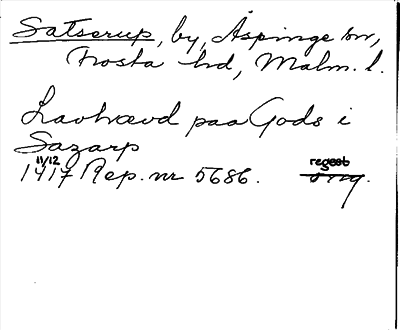 Satserup, by, Äspinge sn,
Frosta hd, Malm. l.
Lavhævd paa Gods i
Sazarp
11/12
1417 Rep. nr 5686. regest
orig.